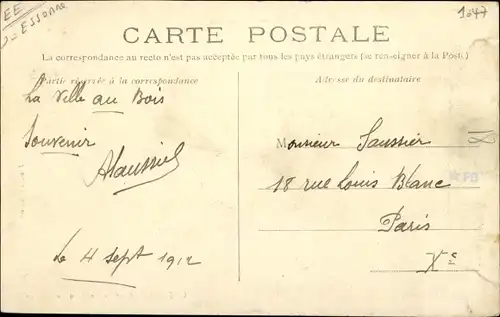 EE
= ESSONNE
1047
CARTE POSTALE
La correspondance au recto n'est pas acceptée par tous les pays étrangers (se renseigner à la Poste.)
Partie réservée à la correspondance
Adresse du destinataire
La Ville au Bois
Souvenir
Le 4 Sept 1912
Monsieur Saussier
18 rue Louis Blanc
Paris
Xe
FB